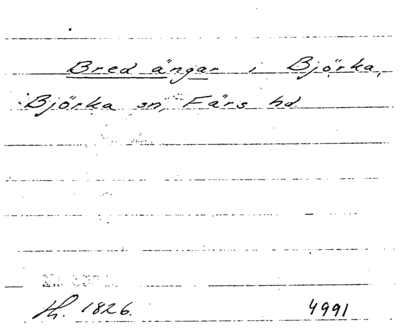 Bred ängar i Björka,
Björka sn, Färs hd
1826. 4991